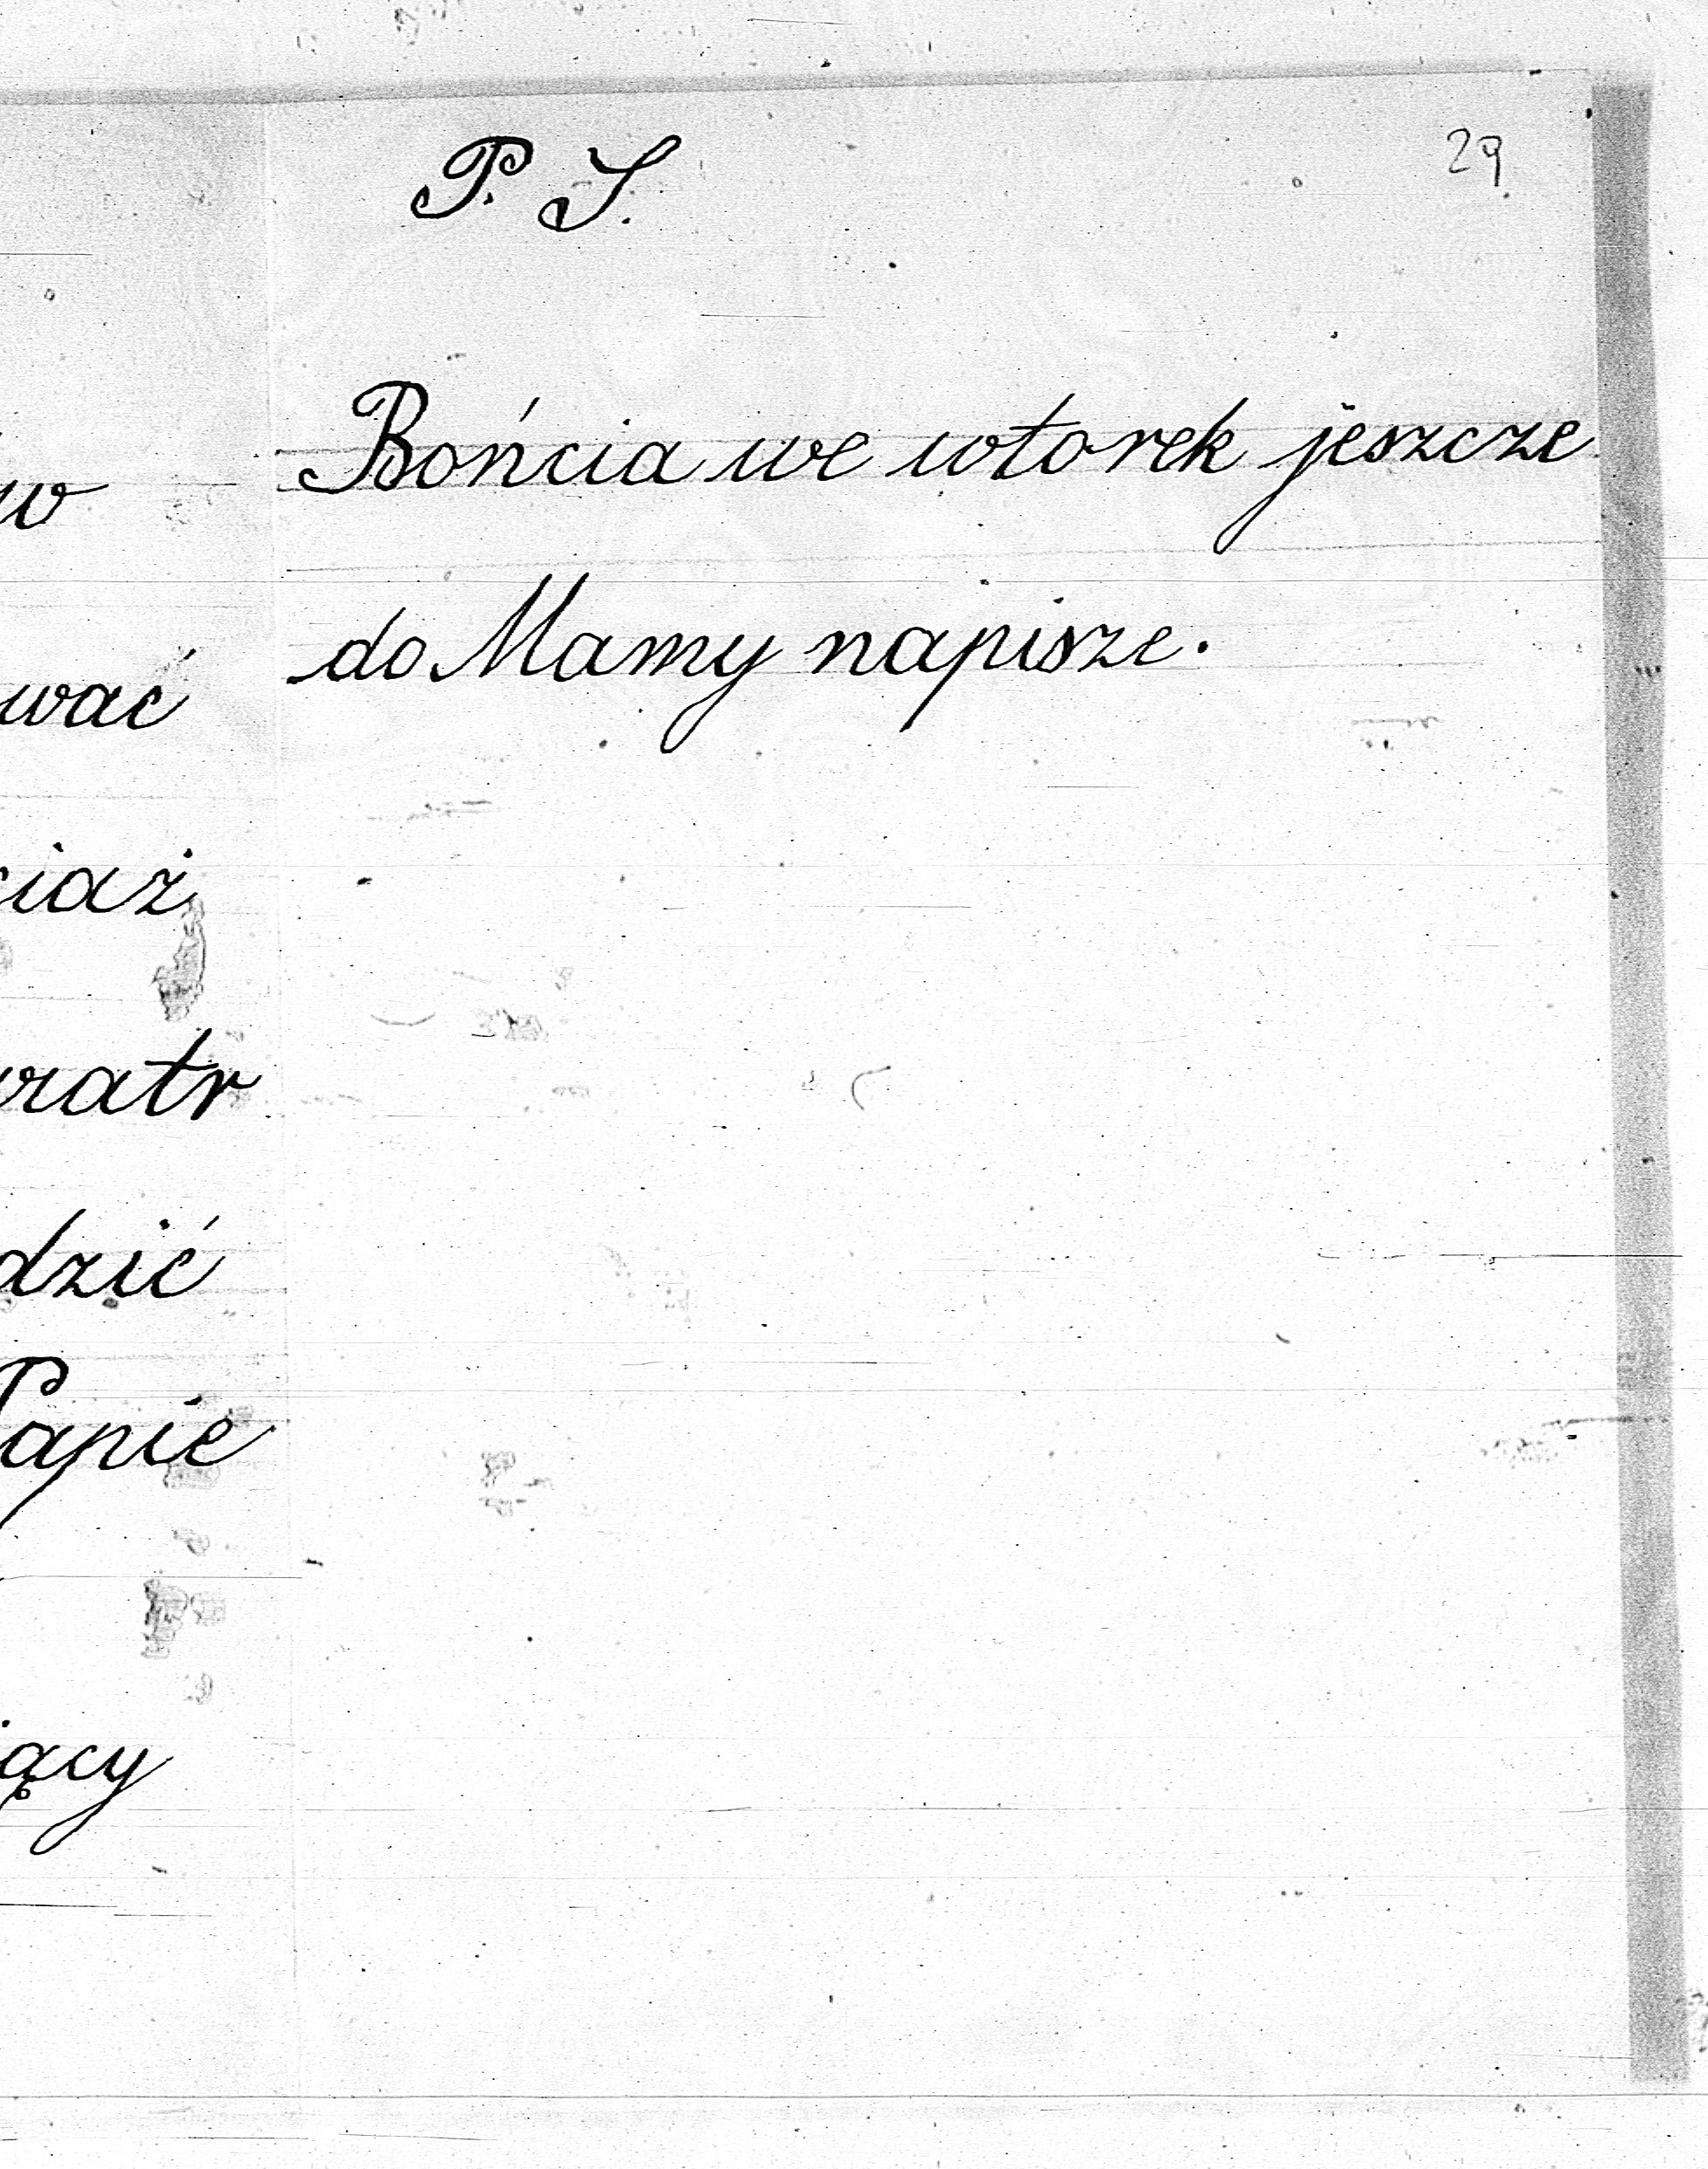 w
wać
ciaż
wratr
dzić
Papie
iący
P. S. 29
Bońcia we wtorek jeszcze
do Mamy napisze.